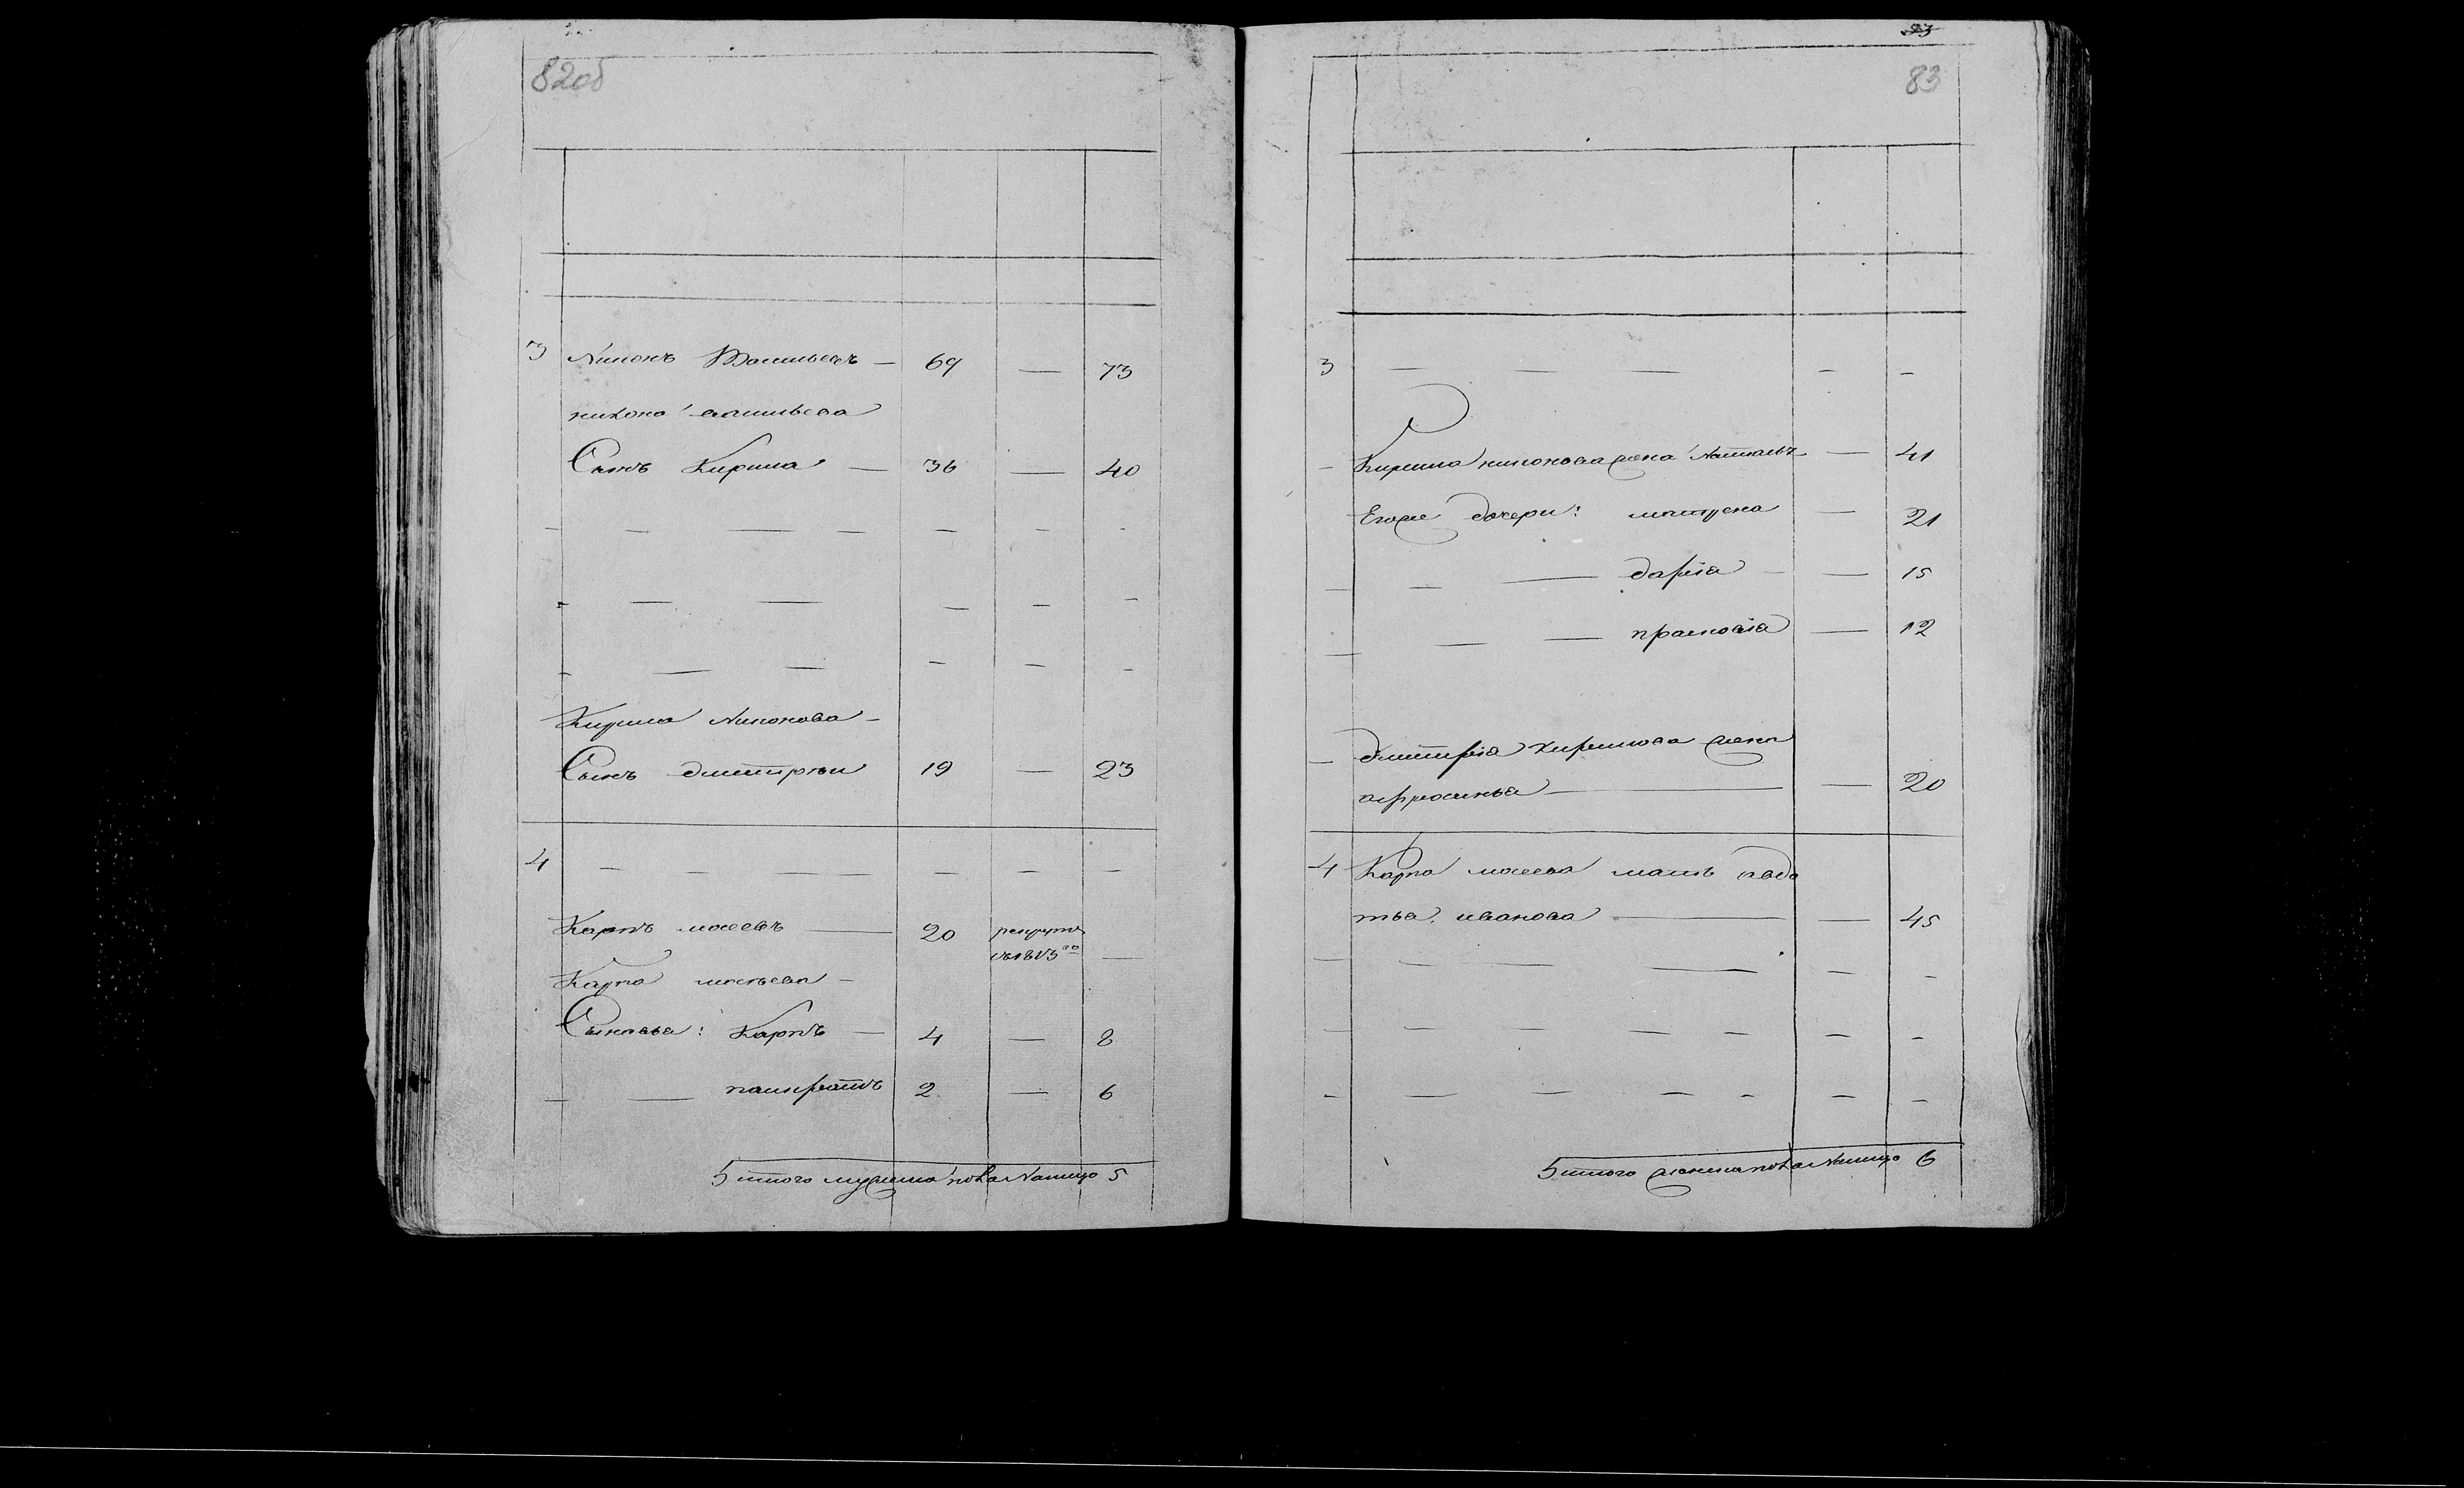 82об
3 Никонъ Васильевъ — 69 — 73
никона васильева
Сынъ Кирила — 36 — 40
Кирила Никонова —
Сынъ дмитрѣи 19 — 23
4 — — — — — — —
Карпъ мосеевъ — 20 рекрутъ
въ 1813го —
Карпа мосѣева —
Сыновья: Карпъ — 4 — 8
— — панкратъ 2 — 6
итого мужеска пола Налицо 5
83
83
3 — — — — —
Кирила никонова жена — 41
Егоже дочери: матрена — 21
— — — дарія — — 15
— — — прасковія — 12
дмитрія кирилова жена
афросинья — — 20
4 Карпа мосеева мать авдо
тья иванова — — 45
итого женска пола Налицо 6